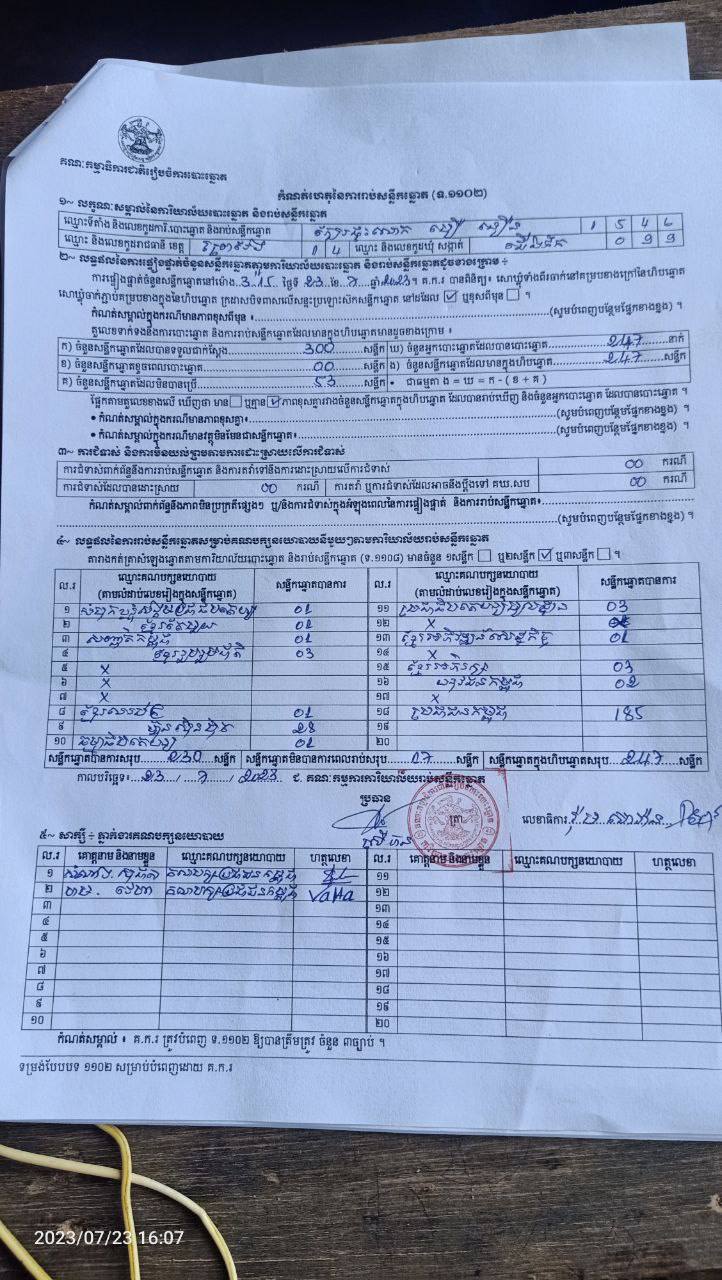 គណៈកម្មាធិការជាតិរៀបចំការបោះឆ្នោត
កំណត់ហេតុនៃការរាប់សន្លឹកឆ្នោត (ទ.១១០២)
១~ លក្ខណៈសម្គាល់នៃការិយាល័យបោះឆ្នោត និងរាប់សន្លឹកឆ្នោត
ឈ្មោះទីតាំង និងលេខកូដការិ.បោះឆ្នោត និងរាប់សន្លឹកឆ្នោត 1 5 4 6
ឈ្មោះ និងលេខកូដរាជធានី ខេត្ត 1 4 ឈ្មោះ និងលេខកូដឃុំ សង្កាត់ 0 9 9
២~ លទ្ធផលនៃការផ្ទៀងផ្ទាត់ចំនួនសន្លឹកឆ្នោតតាមការិយាល័យបោះឆ្នោត និងរាប់សន្លឹកឆ្នោតដូចខាងក្រោម ÷
ការផ្ទៀងផ្ទាត់ចំនួនសន្លឹកឆ្នោតនៅម៉ោង 3:15 ថ្ងៃទី 23 ខែ 7 ឆ្នាំ 2023 ។ គ.ក.រ បានពិនិត្យ៖ សោឃ្មុំទាំងពីរចាក់នៅគម្របខាងក្រៅនៃហិបឆ្នោត
សោឃ្មុំចាក់ភ្ជាប់គម្របខាងក្នុងនៃហិបឆ្នោត ក្រដាសបិទពាសលើសន្ទះប្រឡោះស៊កសន្លឹកឆ្នោត នៅដដែល ☑ ឬខុសពីមុន ☐ ។
កំណត់សម្គាល់ក្នុងករណីមានភាពខុសពីមុន ៖ (សូមបំពេញបន្ថែមផ្នែកខាងខ្នង) ។
តួលេខទាក់ទងនឹងការបោះឆ្នោត និងការរាប់សន្លឹកឆ្នោតដែលមានក្នុងហិបឆ្នោតមានដូចខាងក្រោម ៖
ក) ចំនួនសន្លឹកឆ្នោតដែលបានទទួលជាក់ស្តែង 300 សន្លឹក ឃ) ចំនួនអ្នកបោះឆ្នោតដែលបានបោះឆ្នោត 247 នាក់
ខ) ចំនួនសន្លឹកឆ្នោតខូចពេលបោះឆ្នោត 00 សន្លឹក ង) ចំនួនសន្លឹកឆ្នោតដែលមានក្នុងហិបឆ្នោត 247 សន្លឹក
គ) ចំនួនសន្លឹកឆ្នោតដែលមិនបានប្រើ 53 សន្លឹក • ជាធម្មតា ង = ឃ = ក - (ខ + គ)
ផ្អែកតាមតួលេខខាងលើ ឃើញថា មាន ☐ ឬគ្មាន ☑ ភាពខុសគ្នារវាងចំនួនសន្លឹកឆ្នោតក្នុងហិបឆ្នោត ដែលបានរាប់ឃើញ និងចំនួនអ្នកបោះឆ្នោត ដែលបានបោះឆ្នោត ។
• កំណត់សម្គាល់ក្នុងករណីមានភាពខុសគ្នា៖ (សូមបំពេញបន្ថែមផ្នែកខាងខ្នង) ។
• កំណត់សម្គាល់ក្នុងករណីមានវត្ថុមិនមែនជាសន្លឹកឆ្នោត៖ (សូមបំពេញបន្ថែមផ្នែកខាងខ្នង) ។
៣~ ការជំទាស់ និងការមិនយល់ព្រមតាមការដោះស្រាយលើការជំទាស់
ការជំទាស់ពាក់ព័ន្ធនឹងការរាប់សន្លឹកឆ្នោត និងការតវ៉ាទៅនឹងការដោះស្រាយលើការជំទាស់ 00 ករណី
ការជំទាស់ដែលបានដោះស្រាយ 00 ករណី ការតវ៉ា ឬការជំទាស់ដែលអាចនឹងប្តឹងទៅ គឃ.សប 00 ករណី
កំណត់សម្គាល់ពាក់ព័ន្ធនឹងភាពមិនប្រក្រតីផ្សេងៗ ឬ/និងការជំទាស់ក្នុងអំឡុងពេលនៃការផ្ទៀងផ្ទាត់ និងការរាប់សន្លឹកឆ្នោត៖
(សូមបំពេញបន្ថែមផ្នែកខាងខ្នង) ។
៤~ លទ្ធផលនៃការរាប់សន្លឹកឆ្នោតសម្រាប់គណបក្សនយោបាយនីមួយៗតាមការិយាល័យរាប់សន្លឹកឆ្នោត
តារាងកត់ត្រាសំឡេងឆ្នោតតាមការិយាល័យបោះឆ្នោត និងរាប់សន្លឹកឆ្នោត (ទ.១១០៨) មានចំនួន ១សន្លឹក ☐ ឬ២សន្លឹក ☑ ឬ៣សន្លឹក ☐ ។
ល.រ ឈ្មោះគណបក្សនយោបាយ (តាមលំដាប់លេខរៀងក្នុងសន្លឹកឆ្នោត) សន្លឹកឆ្នោតបានការ ល.រ ឈ្មោះគណបក្សនយោបាយ (តាមលំដាប់លេខរៀងក្នុងសន្លឹកឆ្នោត) សន្លឹកឆ្នោតបានការ
១ 01 ១១ 03
២ ខ្មែរតែមួយ 01 ១២ X
៣ សញ្ជាតិកម្ពុជា 01 ១៣ ខ្មែរអភិវឌ្ឍន៍សេដ្ឋកិច្ច 01
៤ ខ្មែររួបរួមជាតិ 03 ១៤ X
៥ X ១៥ ខ្មែរអភិរក្ស 03
៦ X ១៦ យុវជនកម្ពុជា 02
៧ X ១៧ X
៨ 01 ១៨ ប្រជាជនកម្ពុជា 185
៩ ហ្វ៊ុនស៊ិនប៉ិច 28 ១៩
១០ ធម្មាធិបតេយ្យ 01 ២០
សន្លឹកឆ្នោតបានការសរុប 230 សន្លឹក សន្លឹកឆ្នោតមិនបានការពេលរាប់សរុប 17 សន្លឹក សន្លឹកឆ្នោតក្នុងហិបឆ្នោតសរុប 247 សន្លឹក
កាលបរិច្ឆេទ៖ 23 / 7 / 2023 ជ. គណៈកម្មការការិយាល័យរាប់សន្លឹកឆ្នោត
ប្រធាន ត្រា លេខាធិការ
៥~ សាក្សី ÷ ភ្នាក់ងារគណបក្សនយោបាយ
ល.រ គោត្តនាម និងនាមខ្លួន ឈ្មោះគណបក្សនយោបាយ ហត្ថលេខា ល.រ គោត្តនាម និងនាមខ្លួន ឈ្មោះគណបក្សនយោបាយ ហត្ថលេខា
១ គណបក្សប្រជាជនកម្ពុជា ១១
២ គណបក្សប្រជាជនកម្ពុជា VaHa ១២
៣ ១៣
៤ ១៤
៥ ១៥
៦ ១៦
៧ ១៧
៨ ១៨
៩ ១៩
១០ ២០
កំណត់សម្គាល់ ៖ គ.ក.រ ត្រូវបំពេញ ទ.១១០២ ឱ្យបានត្រឹមត្រូវ ចំនួន ៣ច្បាប់ ។
ទម្រង់បែបបទ ១១០២ សម្រាប់បំពេញដោយ គ.ក.រ
2023/07/23 16:07